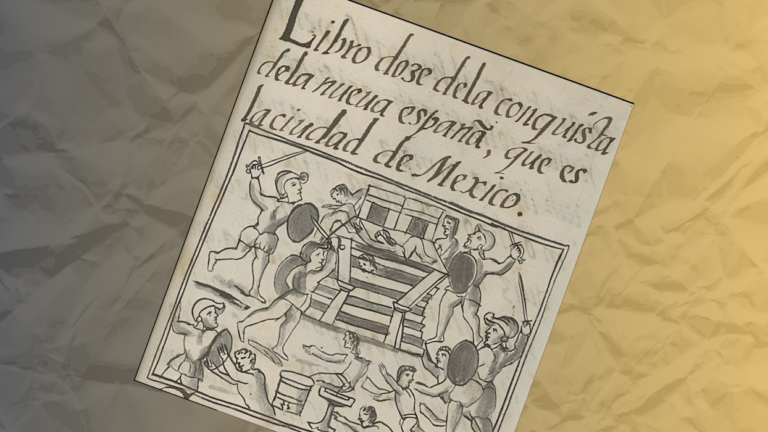 Libro doze dela conquista
dela nueua españã, que es
la ciudad de Mexico.